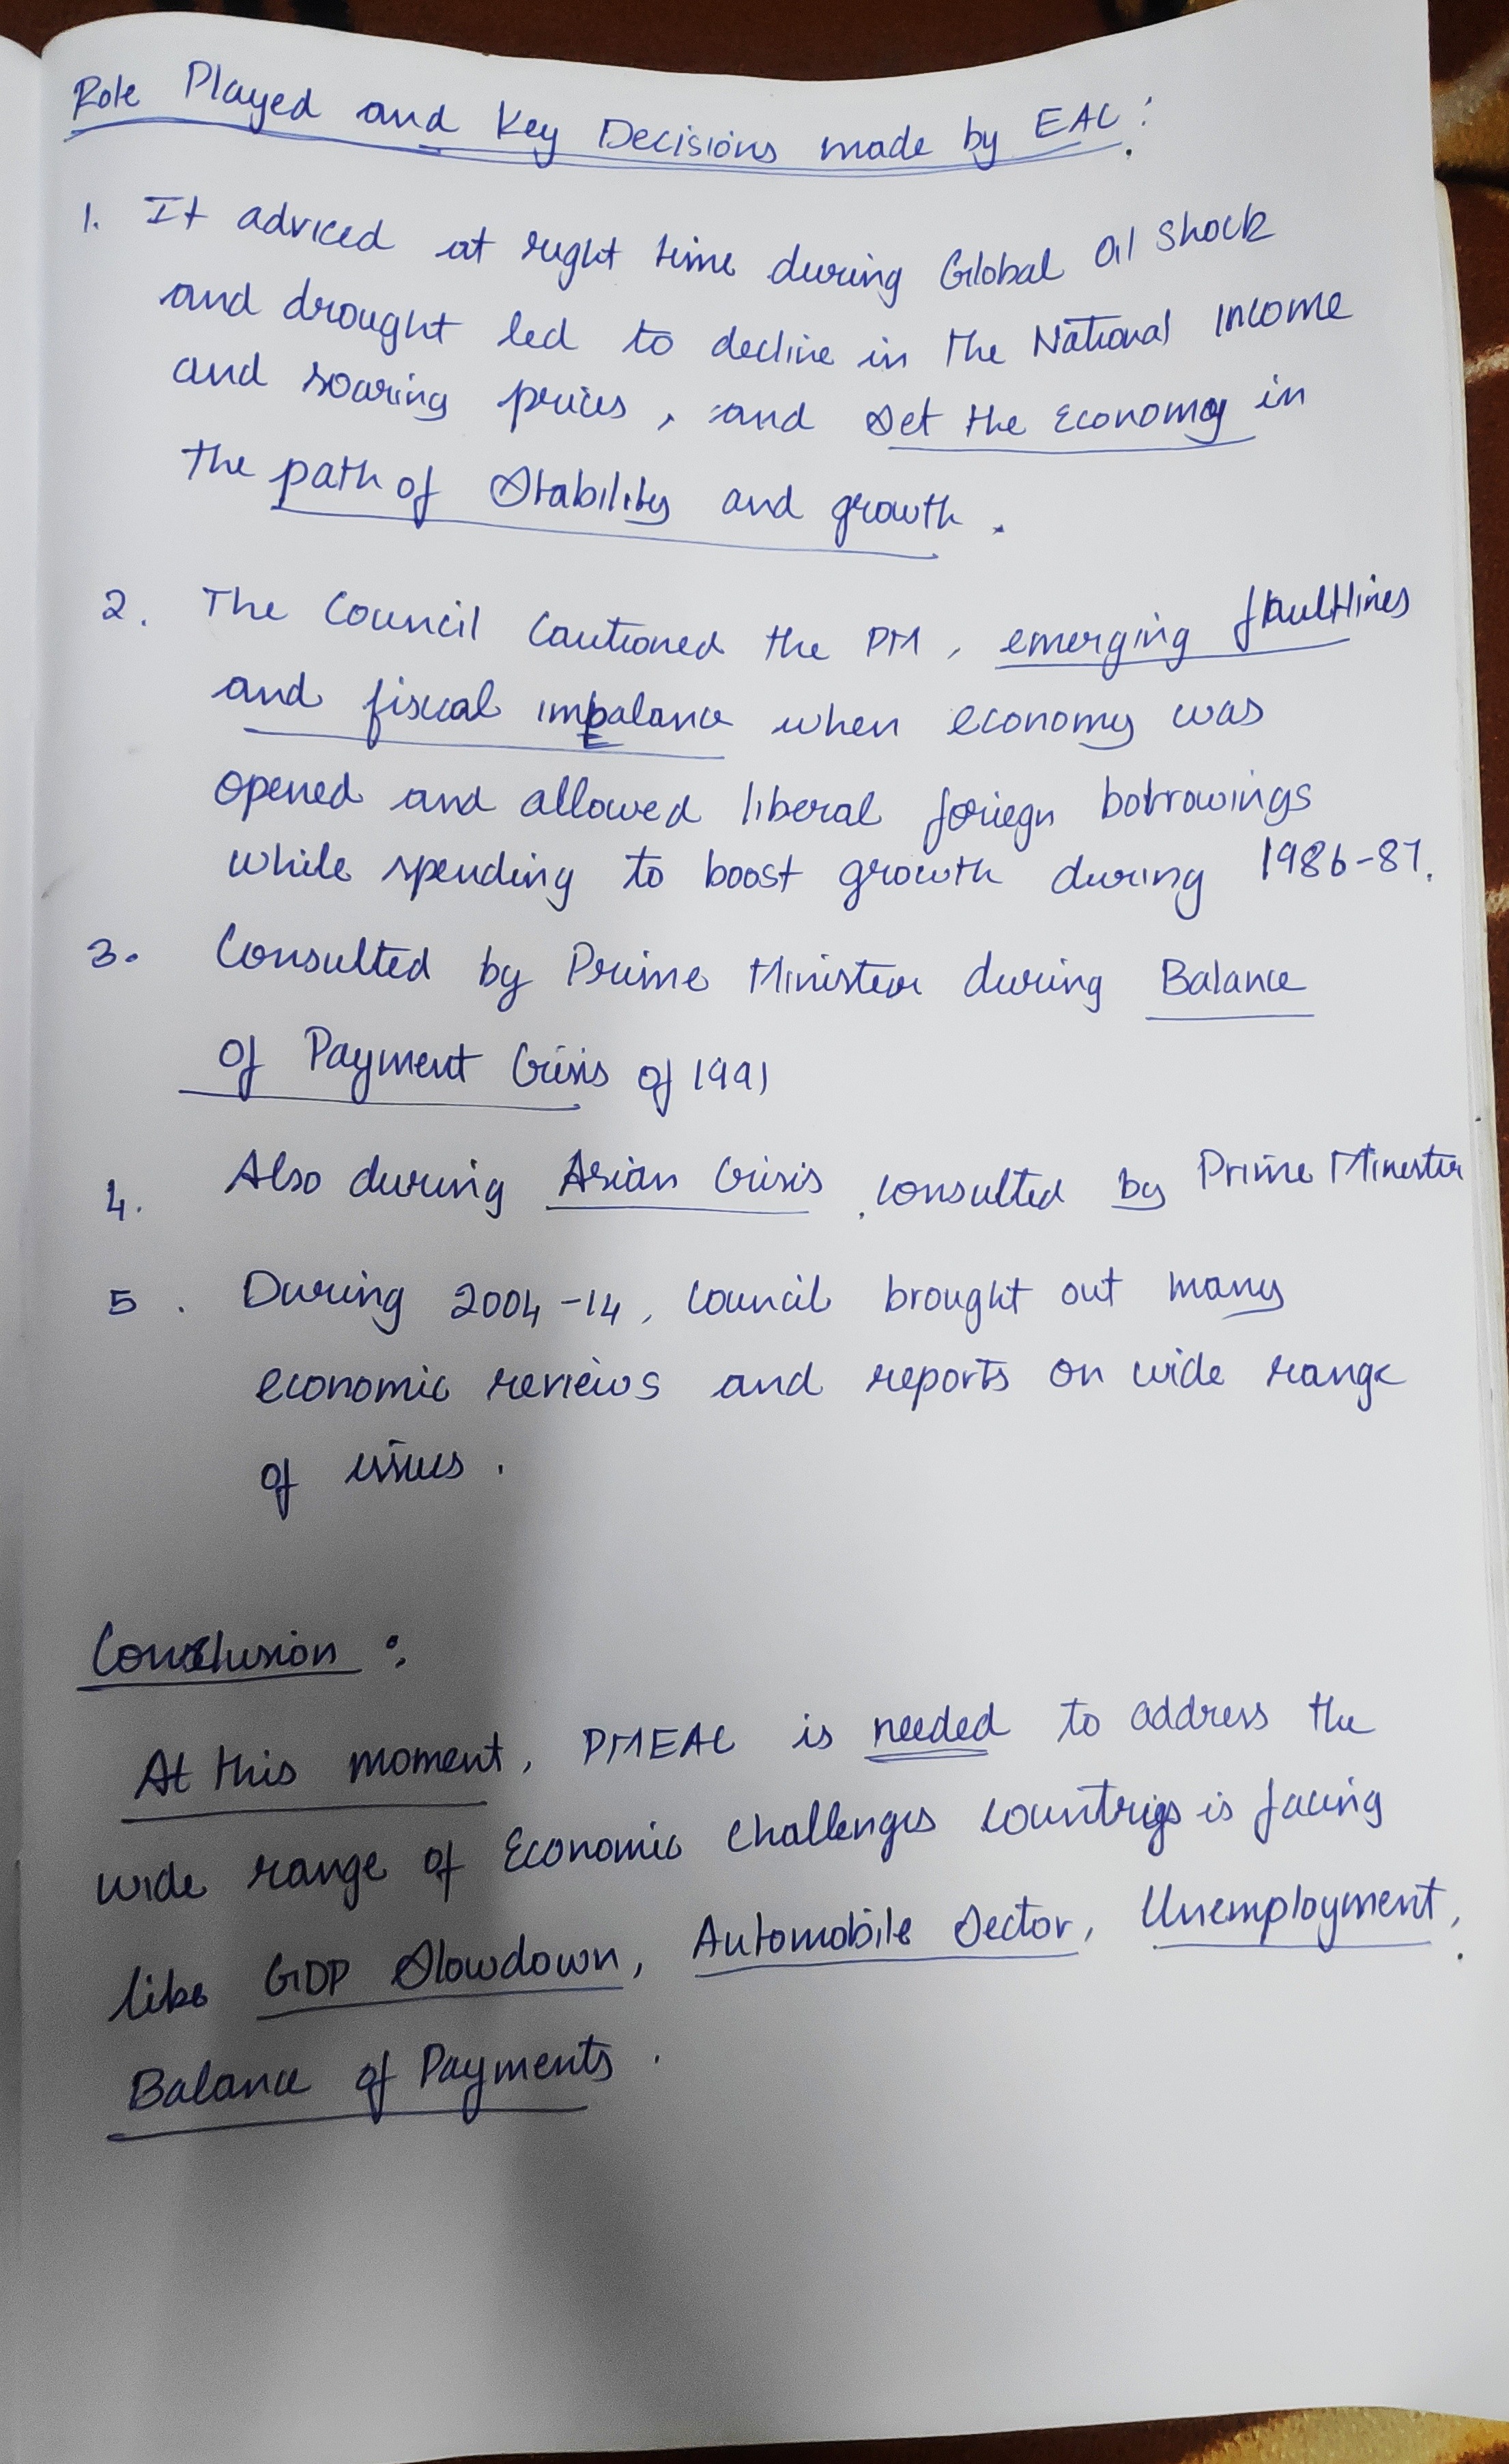 Role Played and Key Decisions made by EAC:
1. It adviced at right time during Global Oil Shock
and drought led to decline in the National Income
and soaring prices, and set the Economy in
the path of Stability and growth.
2. The Council Cautioned the PM, emerging faultlines
and fiscal imbalance when economy was
opened and allowed liberal foriegn borrowings
while spending to boost growth during 1986-87.
3. Consulted by Prime Minister during Balance
of Payment Crisis of 1991
4. Also during Asian Crisis, consulted by Prime Minister
5. During 2004-14, Council brought out many
economic reviews and reports on wide range
of issues.
Conclusion:
At this moment, PMEAC is needed to address the
wide range of Economic Challenges countries is facing
like GDP Slowdown, Automobile Sector, Unemployment,
Balance of Payments.